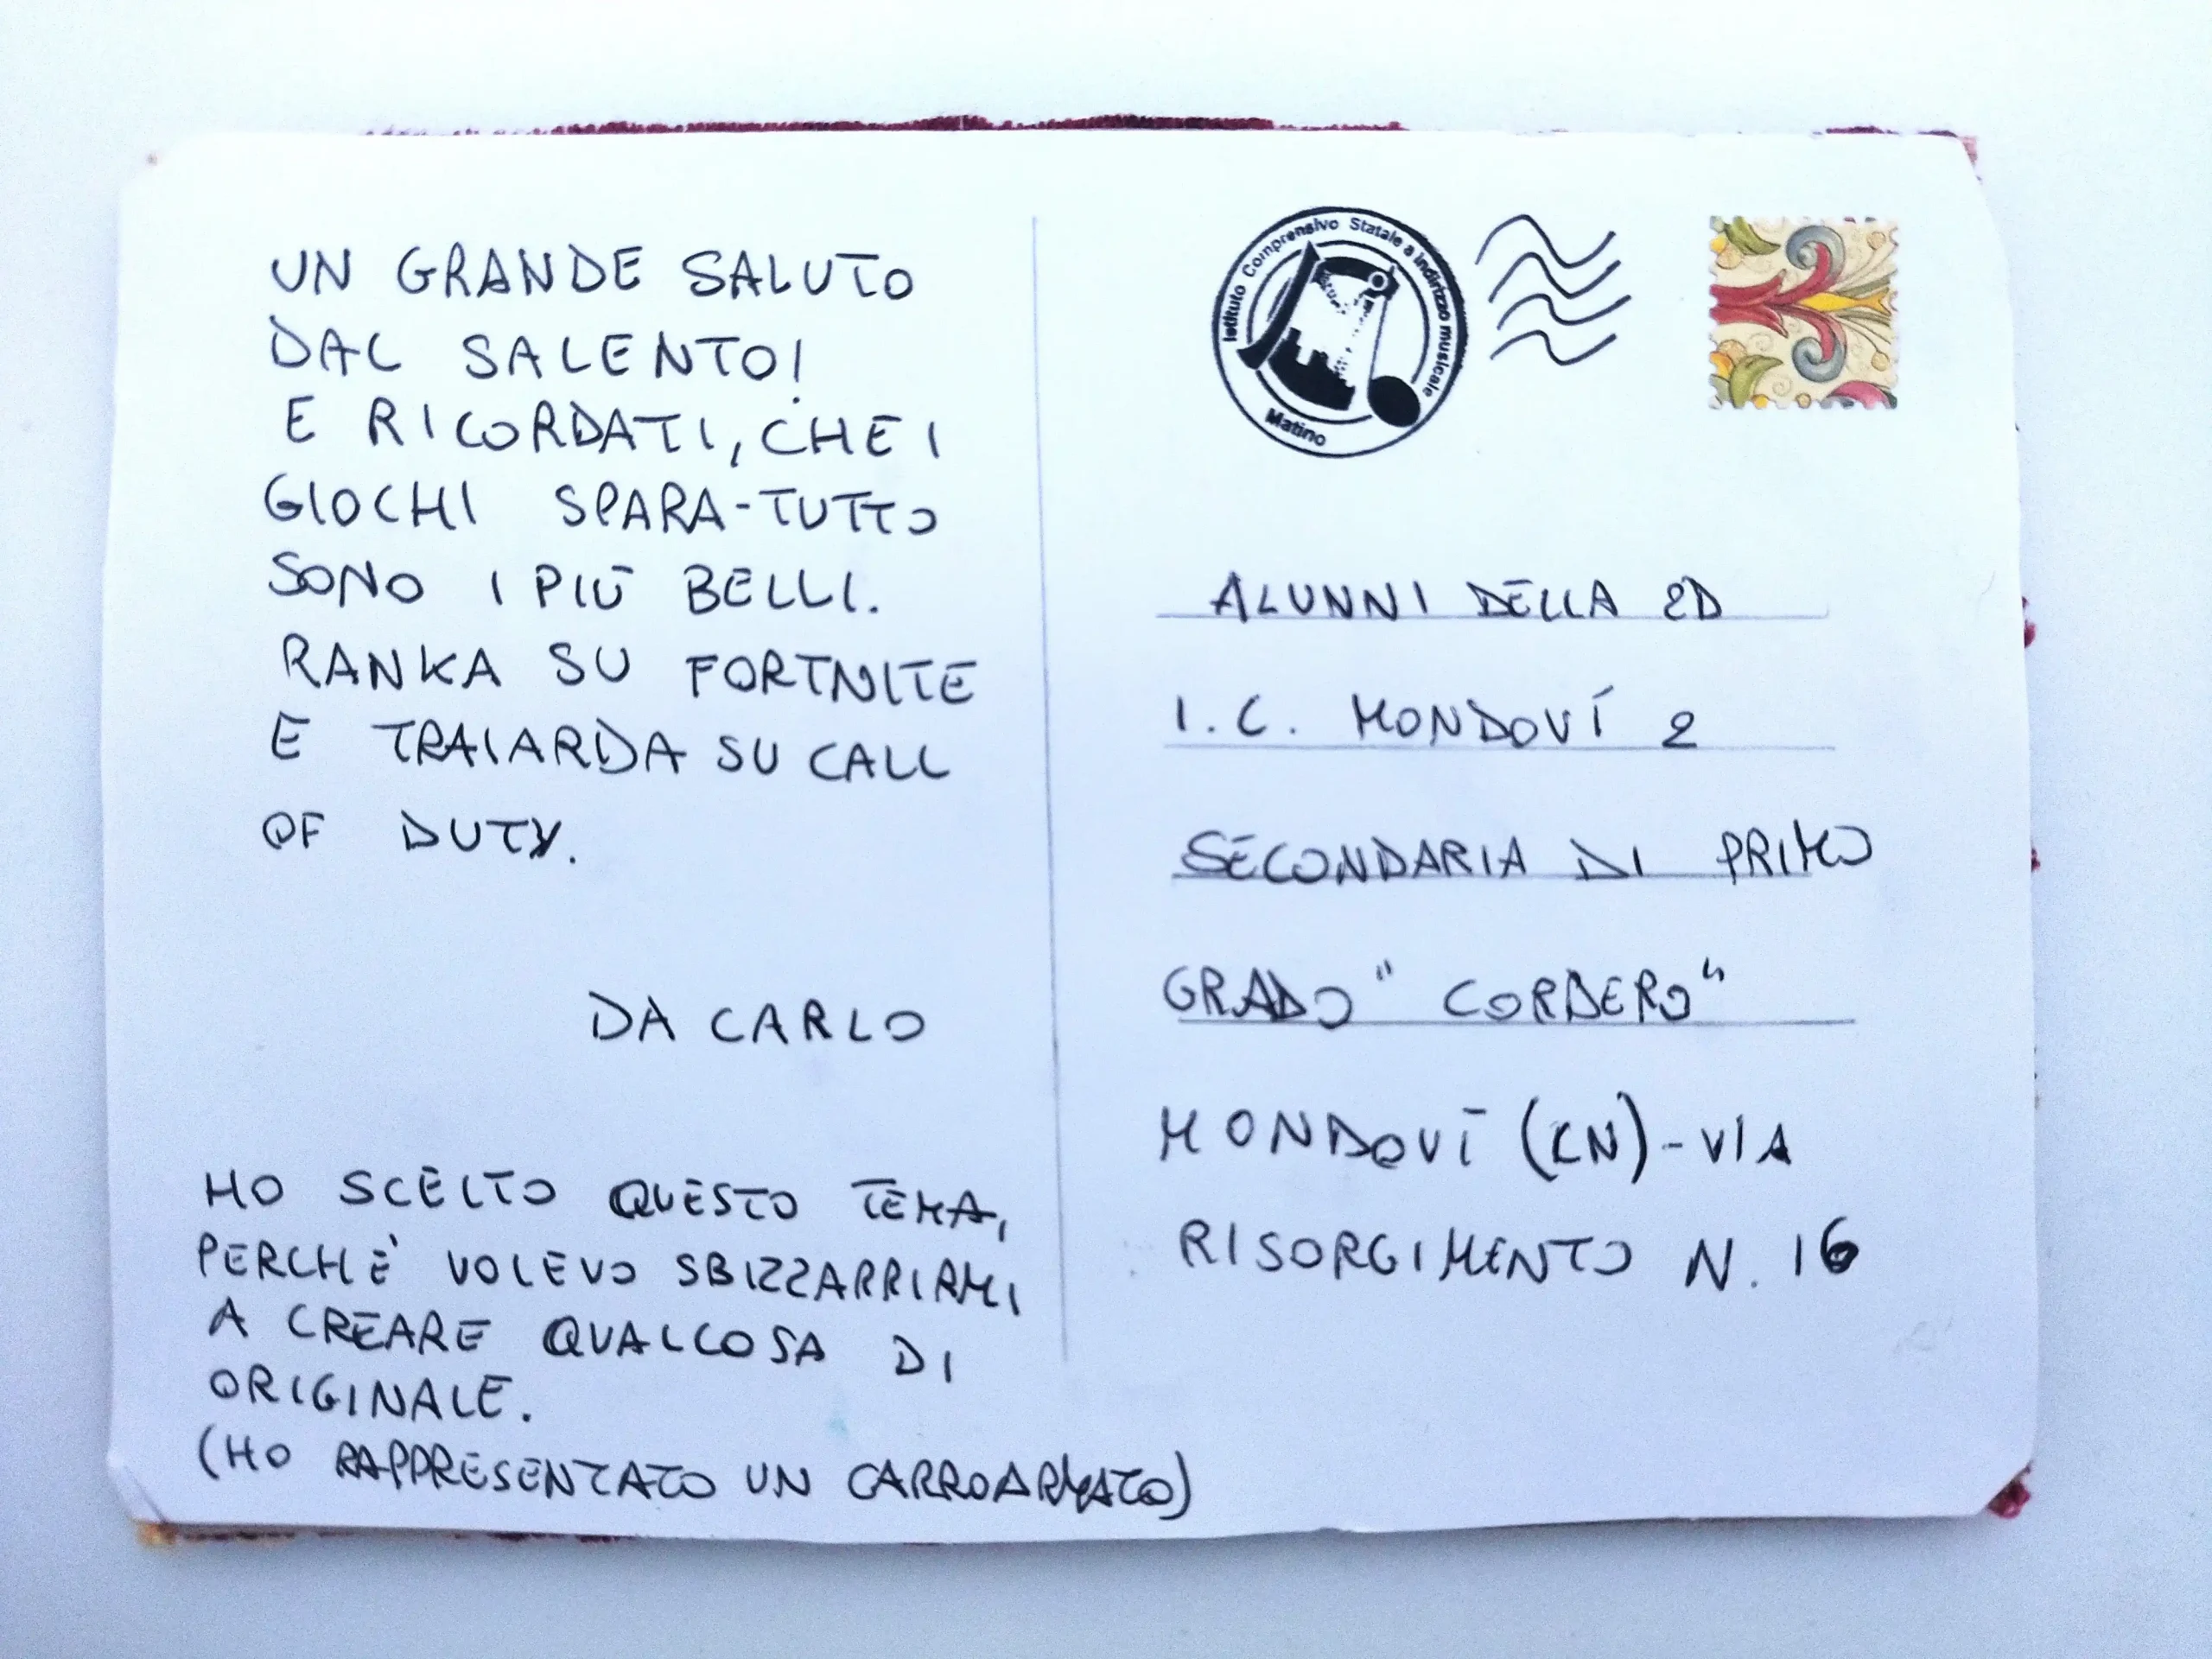 UN GRANDE SALUTO
DAL SALENTO!
E RICORDATI, CHE I
GIOCHI SPARA-TUTTO
SONO I PIÙ BELLI.
RANKA SU FORTNITE
E TRAIARDA SU CALL
OF DUTY.
DA CARLO
HO SCELTO QUESTO TEMA,
PERCHÈ VOLEVO SBIZZARRIRMI
A CREARE QUALCOSA DI
ORIGINALE.
(HO RAPPRESENTATO UN CARROARMATO)
Istituto Comprensivo Statale a indirizzo musicale
Matino
ALUNNI DELLA 2D
I.C. MONDOVÍ 2
SECONDARIA DI PRIMO
GRADO "CORDERO"
MONDOVÌ (CN)-VIA
RISORGIMENTO N. 16